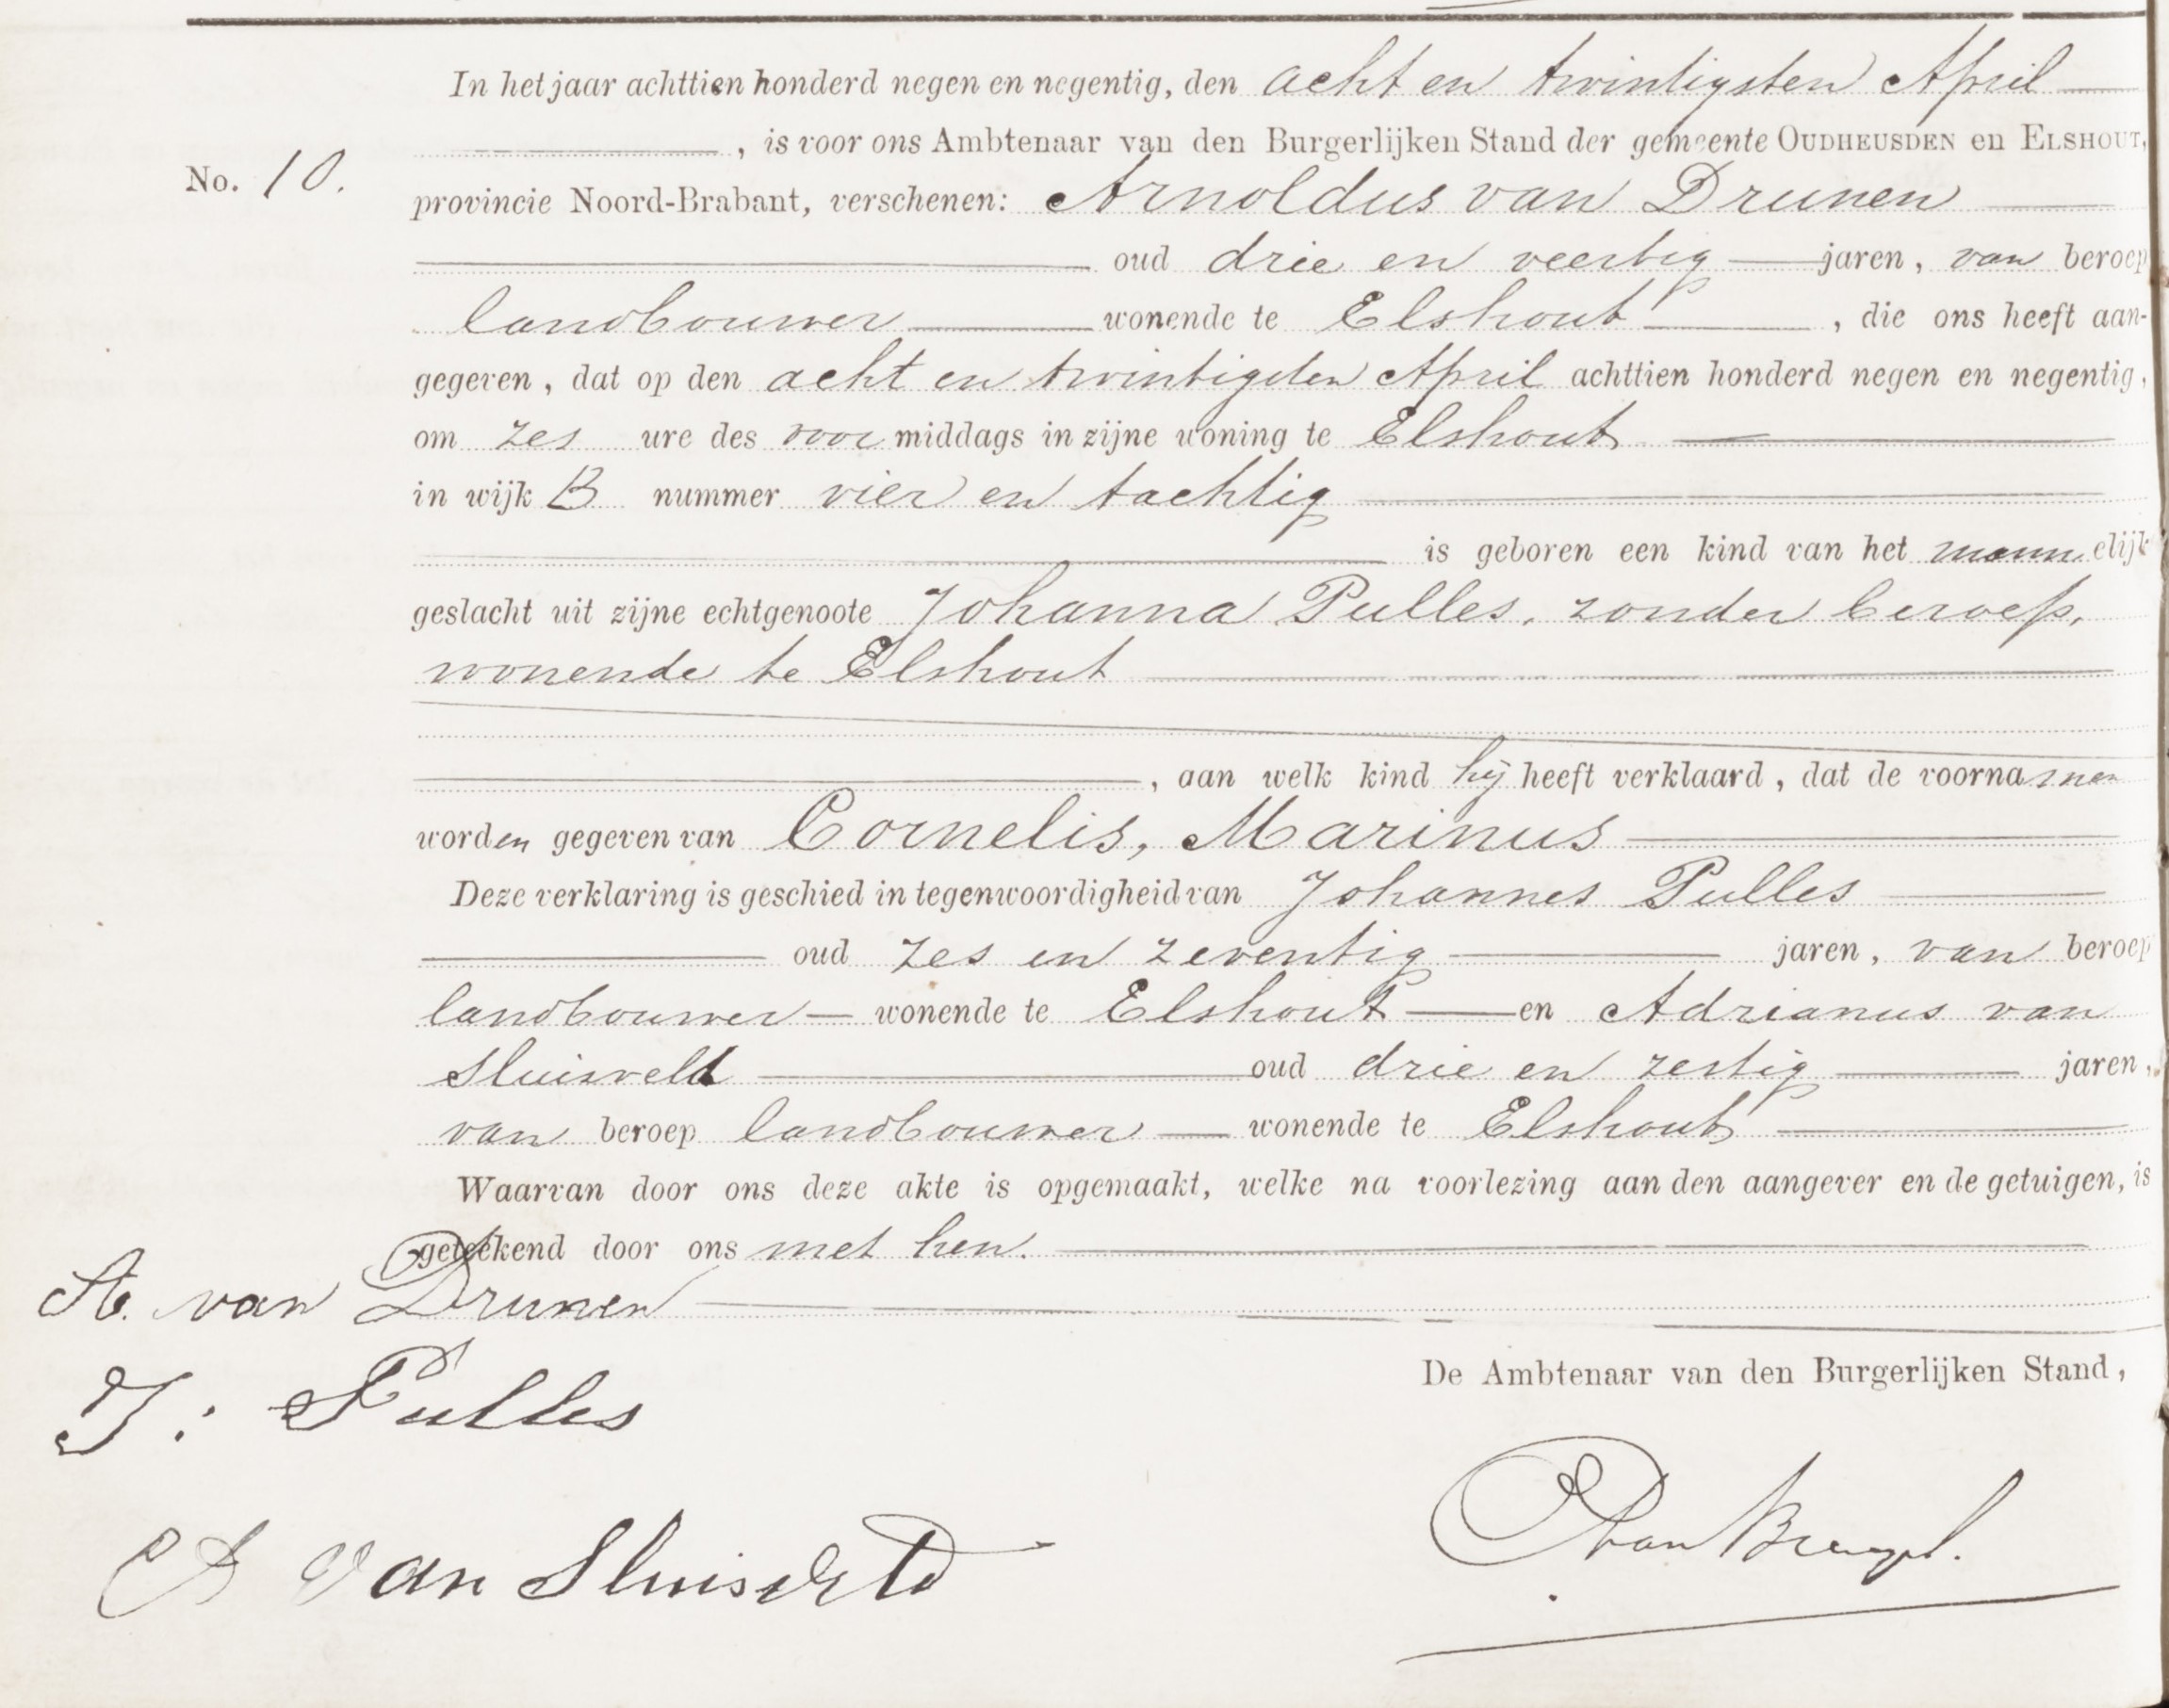 In het jaar achttien honderd negen en negentig, den acht en twintigsten April
, is voor ons Ambtenaar van den Burgerlijken Stand der gemeente OUDHEUSDEN en ELSHOUT,
No. 10.
provincie Noord-Brabant, verschenen: Arnoldus van Drunen
oud drie en veertig jaren, van beroep
landbouwer wonende te Elshout, die ons heeft aan-
gegeven, dat op den acht en twintigsten April achttien honderd negen en negentig,
om zes ure des voormiddags in zijne woning te Elshout
in wijk B nummer vier en tachtig
is geboren een kind van het mannelijk
geslacht uit zijne echtgenoote Johanna Pulles, zonder beroep,
wonende te Elshout
, aan welk kind hij heeft verklaard, dat de voornamen
worden gegeven van Cornelis, Marinus
Deze verklaring is geschied in tegenwoordigheid van Johannes Pulles
oud zes en zeventig jaren, van beroep
landbouwer wonende te Elshout en Adrianus van
Sluisveld oud drie en zestig jaren,
van beroep landbouwer wonende te Elshout
Waarvan door ons deze akte is opgemaakt, welke na voorlezing aan den aangever en de getuigen, is
geteekend door ons met hen.
A. van Drunen
J: Pulles
De Ambtenaar van den Burgerlijken Stand,
A van Sluisveld